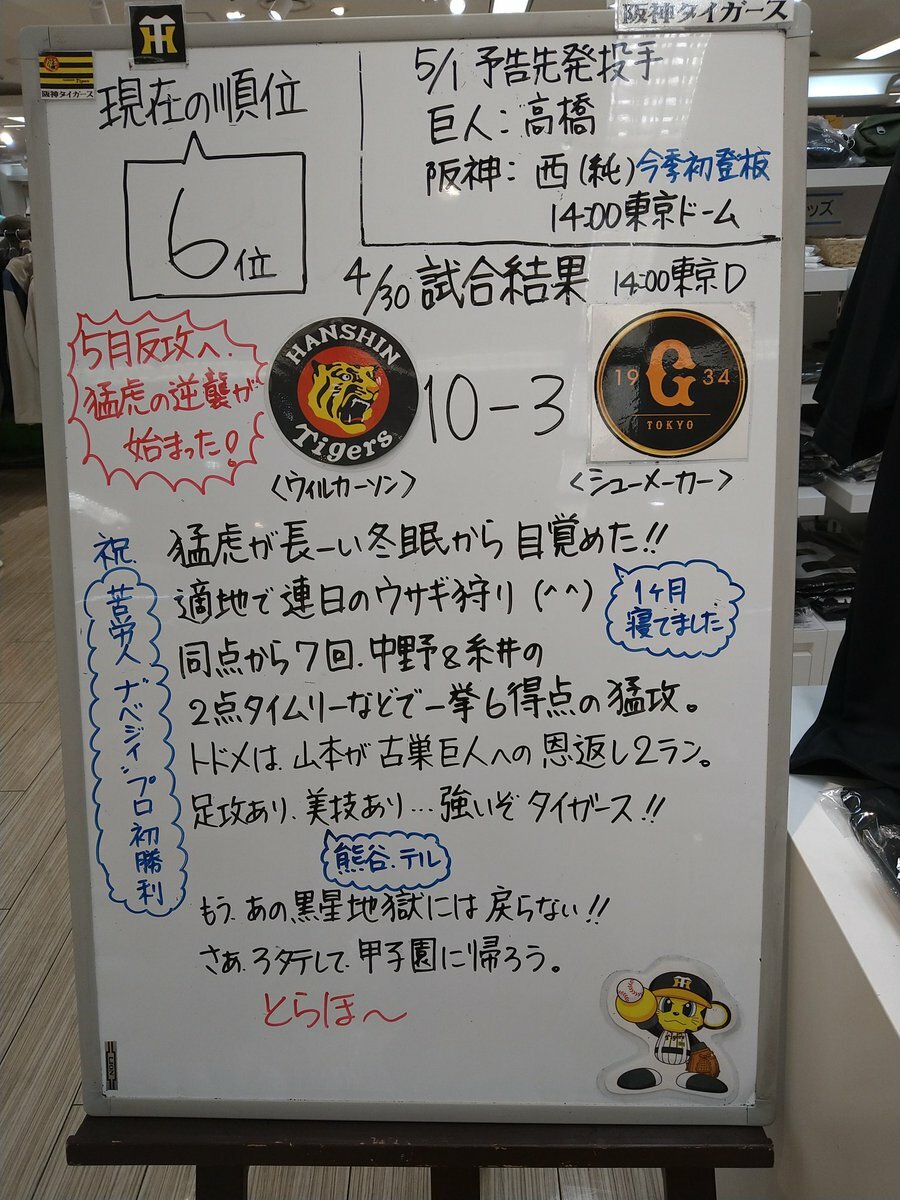 阪神タイガース
阪神タイガース
現在の順位
6位
5/1 予告先発投手
巨人:高橋
阪神:西(純)今季初登板
14:00東京ドーム
4/30 試合結果 14:00東京D
5月反攻へ.
猛虎の逆襲が
始まった!
HANSHIN
Tigers
10-3
19 G 34
TOKYO
<ウィルカーソン>
<シューメーカー>
祝.
苦労人 ナベジィ プロ初勝利
猛虎が長ーい冬眠から目覚めた!!
適地で連日のウサギ狩り(^^)
1ヶ月
寝てました
同点から7回.中野&糸井の
2点タイムリーなどで一挙6得点の猛攻。
トドメは.山本が古巣巨人への恩返し2ラン。
足攻あり、美技あり…強いぞタイガース!!
熊谷.テル
もう.あの黒星地獄には戻らない!!
さあ.3タテして.甲子園に帰ろう。
とらほ〜
ッズ